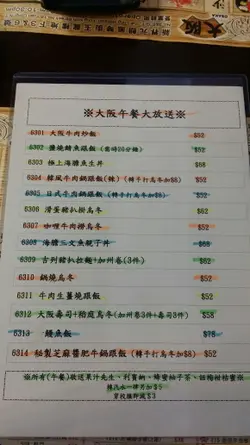 ※大阪午餐大放送※
6301 大阪牛肉炒飯 $52
6302 鹽燒鯖魚跟飯 $52
6303 極上海膽魚生丼 $68
6304 韓風牛肉鍋跟飯(辣) (轉平打烏冬加$8) $52
6305 日式牛肉鍋跟飯 (轉平打烏冬加$8) $52
6306 滑蛋豬扒烏冬 $62
6307 咖喱牛肉烏冬 $52
6308 海膽三文魚親子丼 $68
6309 吉列豬扒拉麵+加州卷(3件) $62
6310 鍋燒烏冬 $52
6311 牛肉生薑燒跟飯 $52
6312 大阪壽司+稻庭烏冬(加州卷3件+壽司3件) $58
6313 鰻魚飯 $78
6314 秘製芝麻醬肥牛鍋跟飯 (轉平打烏冬加$8) $52